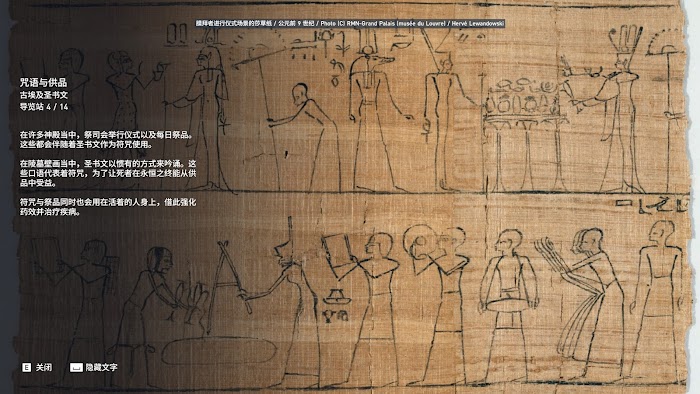 膜拜者进行仪式场景的莎草纸 / 公元前 9 世纪 / Photo (C) RMN-Grand Palais (musée du Louvre) / Hervé Lewandowski
咒语与供品
古埃及圣书文
导览站 4 / 14
在许多神殿当中，祭司会举行仪式以及每日祭品。
这些都会伴随着圣书文作为符咒使用。
在陵墓壁画当中，圣书文以惯有的方式来吟诵。这
些口语代表着符咒，为了让死者在永恒之终能从供
品中受益。
符咒与祭品同时也会用在活着的人身上，借此强化
药效并治疗疾病。
E 关闭
隐藏文字